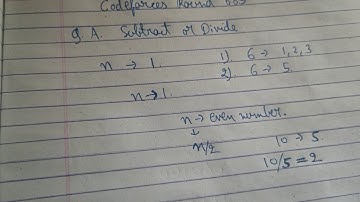 Codeforces Round
Q A. Subtract or Divide
n → 1. 1). 6 → 1, 2, 3
2). 6 → 5.
n → 1.
n → even number.
↓
n/2 10 → 5.
10/5 = 2